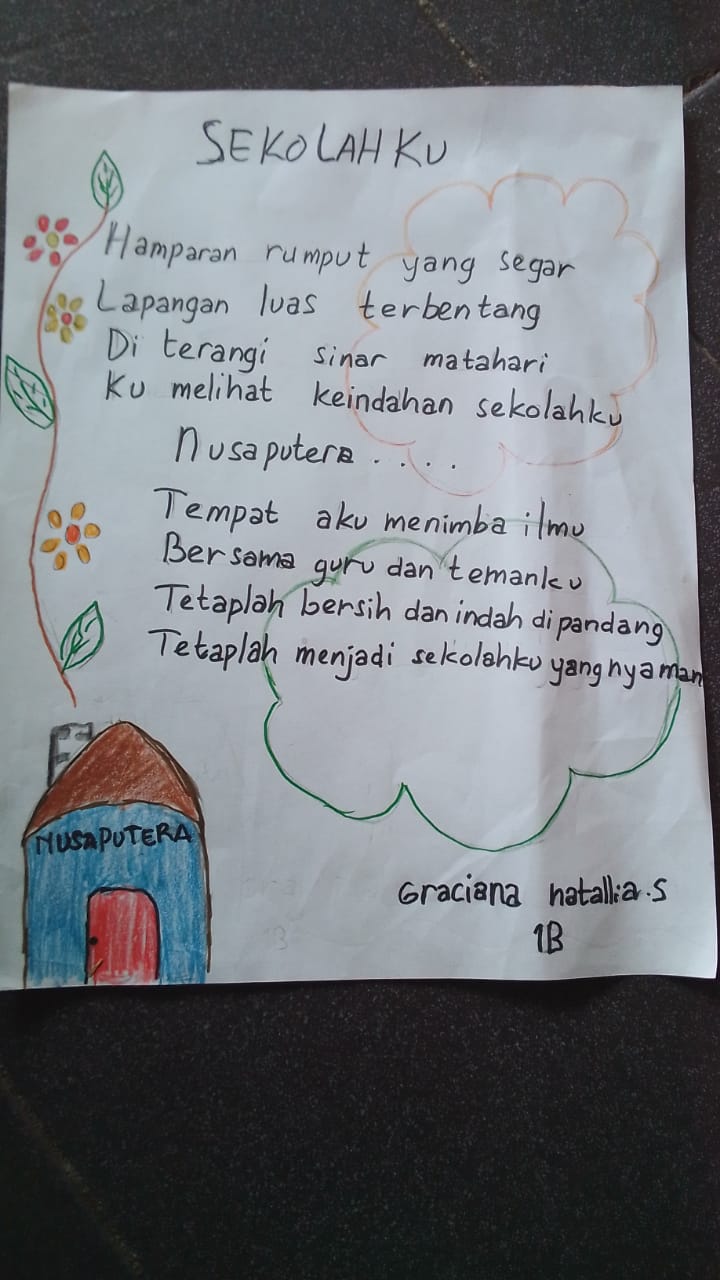 SEKOLAHKU
Hamparan rumput yang segar
Lapangan luas terbentang
Di terangi sinar matahari
Ku melihat keindahan sekolahku
Nusaputera . . . .
Tempat aku menimba ilmu
Bersama guru dan temanku
Tetaplah bersih dan indah dipandang
Tetaplah menjadi sekolahku yang nyaman
NUSAPUTERA
Graciana natallia.S
1B